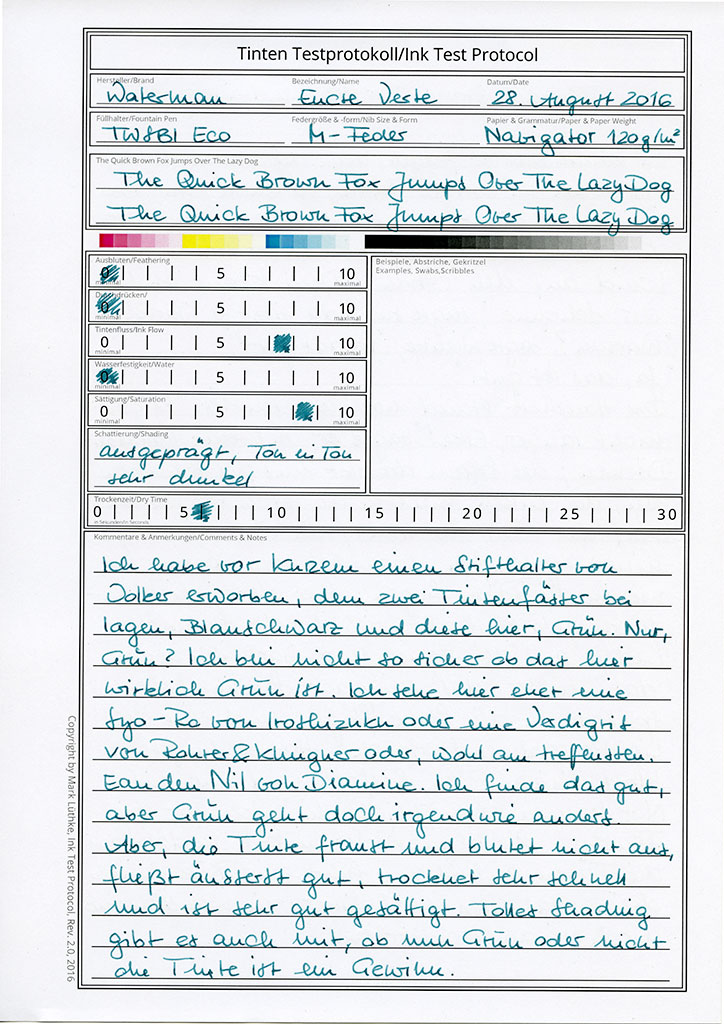 Tinten Testprotokoll/Ink Test Protocol
Hersteller/Brand Bezeichnung/Name Datum/Date
Waterman Encre Verte 28. August 2016
Füllhalter/Fountain Pen Federgröße & -form/Nib Size & Form Papier & Grammatur/Paper & Paper Weight
TWSBI Eco M-Feder Navigator 120g/m²
The Quick Brown Fox Jumps Over The Lazy Dog
The Quick Brown Fox Jumps Over The Lazy Dog
The Quick Brown Fox Jumps Over The Lazy Dog
Ausbluten/Feathering
0 | | | | 5 | | | | 10
minimal maximal
0 | | | | 5 | | | | 10
minimal maximal
Tintenfluss/Ink Flow
0 | | | | 5 | | | 10
minimal maximal
Wasserfestigkeit/Water
0 | | | | 5 | | | | 10
minimal maximal
Sättigung/Saturation
0 | | | | 5 | | | | 10
minimal maximal
Schattierung/Shading
ausgeprägt, Ton in Ton
sehr dunkel
Beispiele, Abstriche, Gekritzel
Examples, Swabs,Scribbles
Trockenzeit/Dry Time
0 | | | | 5 | | | 10 | | | | 15 | | | | 20 | | | | 25 | | | | 30
in Sekunden/in Seconds
Kommentare & Anmerkungen/Comments & Notes
Ich habe vor kurzem einen Stifthalter von
Volker erworben, dem zwei Tintenfässer bei
lagen, Blauschwarz und diese hier, Grün. Nur,
Grün? Ich bin nicht so sicher ob das hier
wirklich Grün ist. Ich sehe hier eher eine
Syo-Ro von Iroshizuku oder eine Verdigris
von Rohrer&Klingner oder, wohl am treffensten.
Eau den Nil von Diamine. Ich finde das gut,
aber Grün geht doch irgendwie anders.
Aber, die Tinte franst und blutet nicht aus,
fließt äusserst gut, trocknet sehr schnell
und ist sehr gut gesättigt. Tolles Shading
gibt es auch mit, ob nun Grün oder nicht
die Tinte ist ein Gewinn.
Copyright by Mark Lüthke, Ink Test Protocol, Rev. 2.0, 2016